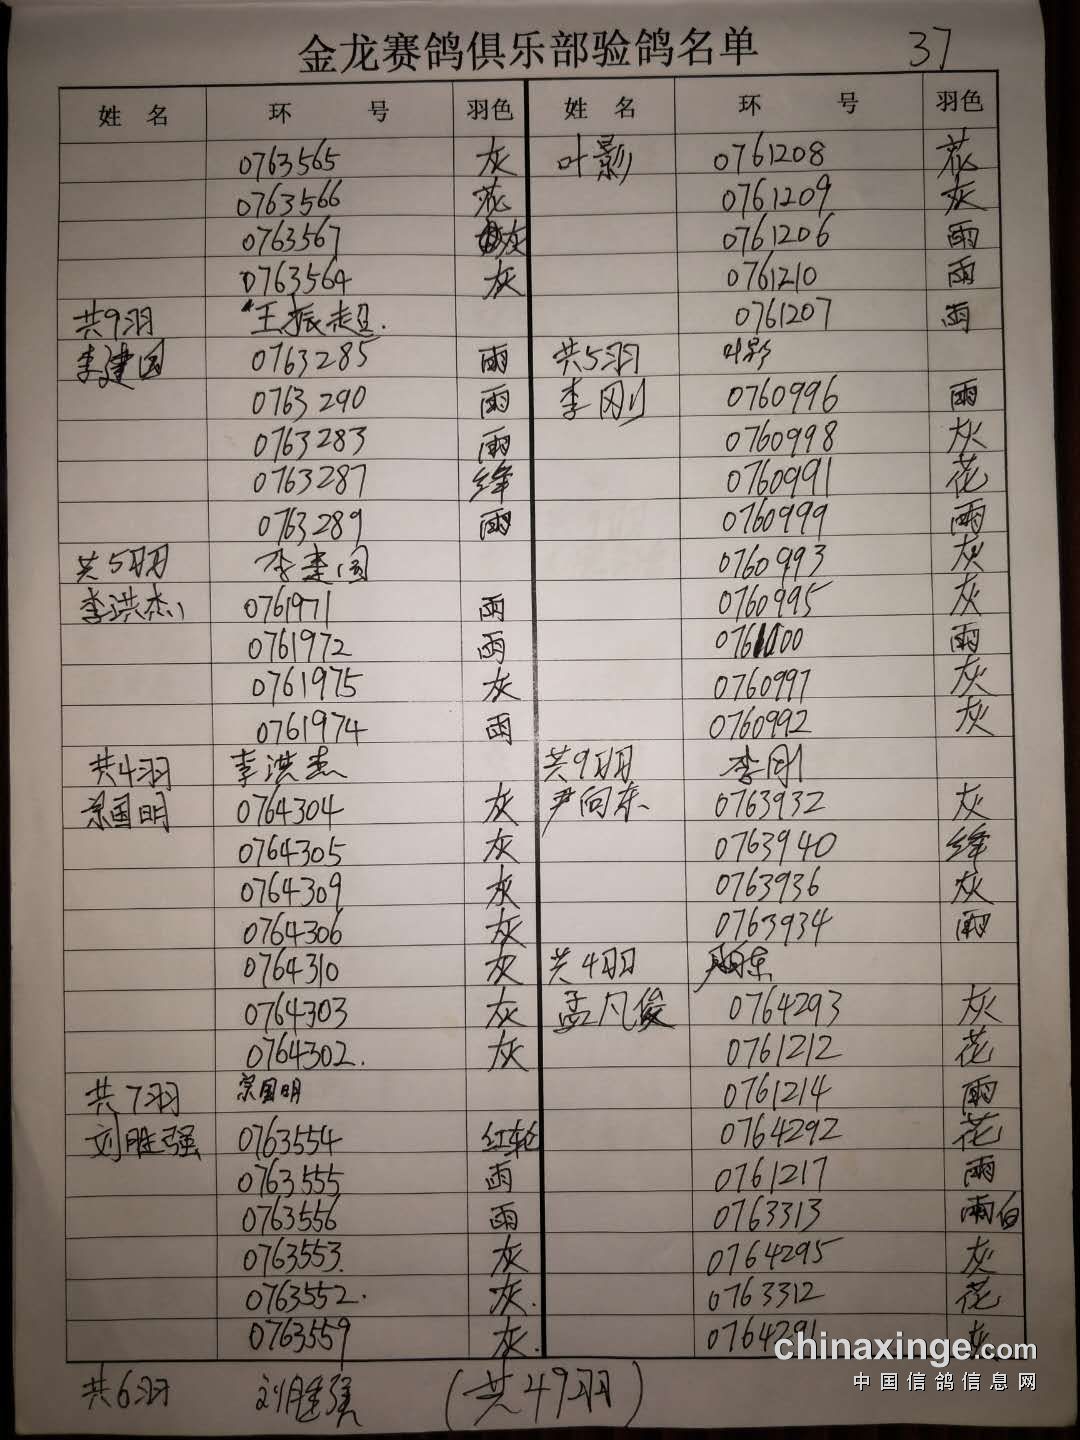 金龙赛鸽俱乐部验鸽名单 37
姓 名 环 号 羽色
0763565 灰
0763566 花
0763567 灰
0763564 灰
共9羽 王振超.
李建国 0763285 雨
0763290 雨
0763283 雨
0763287 绛
0763289 雨
共5羽 李建国
李洪杰 0761971 雨
0761972 雨
0761975 灰
0761974 雨
共4羽 李洪杰
宗国明 0764304 灰
0764305 灰
0764309 灰
0764306 灰
0764310 灰
0764303 灰
0764302. 灰
共7羽 宗国明
刘胜强 0763554 红轮
0763555 雨
0763556 雨
0763553. 灰
0763552. 灰.
0763559 灰.
共6羽 刘胜强
姓 名 环 号 羽色
叶影 0761208 花
0761209 灰
0761206 雨
0761210 雨
0761207 雨
共5羽 叶影
李刚 0760996 雨
0760998 灰
0760991 花
0760999 雨
0760993 灰
0760995 灰
0761000 雨
0760997 灰
0760992 灰
共9羽 李刚
尹向东 0763932 灰
0763940 绛
0763936 灰
0763934 雨
共4羽
孟凡俊 0764293 灰
0761212 花
0761214 雨
0764292 花
0761217 雨
0763313 雨白
0764295 灰
0763312 花
0764291 灰
(共49羽)
chinaxinge.com
中国信鸽信息网